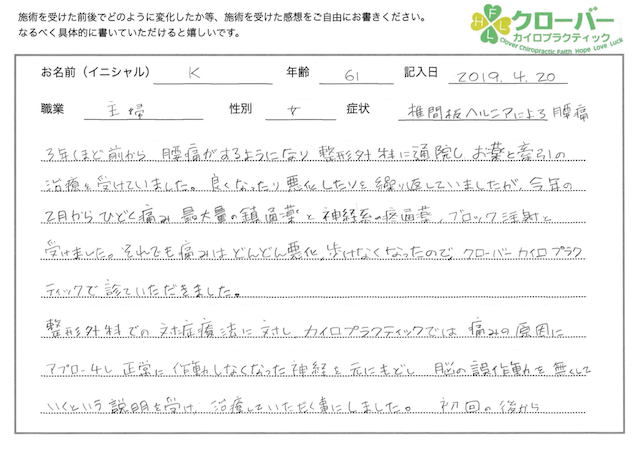 施術を受けた前後でどのように変化したか等、施術を受けた感想をご自由にお書きください。
なるべく具体的に書いていただけると嬉しいです。
クローバー
カイロプラクティック
Clover Chiropractic Faith Hope Love Luck
お名前（イニシャル） K 年齢 61 記入日 2019.4.20
職業 主婦 性別 女 症状 椎間板ヘルニアによる腰痛
3年ほど前から 腰痛がするようになり 整形外科に通院し お薬と牽引の
治療を受けていました。良くなったり悪化したりを繰り返していましたが、今年の
2月からひどく痛み 最大量の鎮痛薬と神経系の疼痛薬、ブロック注射と
受けました。それでも痛みはどんどん悪化、歩けなくなったので、クローバーカイロプラク
ティックで診ていただきました。
整形外科での対症療法に対し、カイロプラクティックでは 痛みの原因に
アプローチし 正常に作動しなくなった神経を元にもどし 脳の誤作動を無くして
いくという説明を受け、治療していただく事にしました。 初回の後から